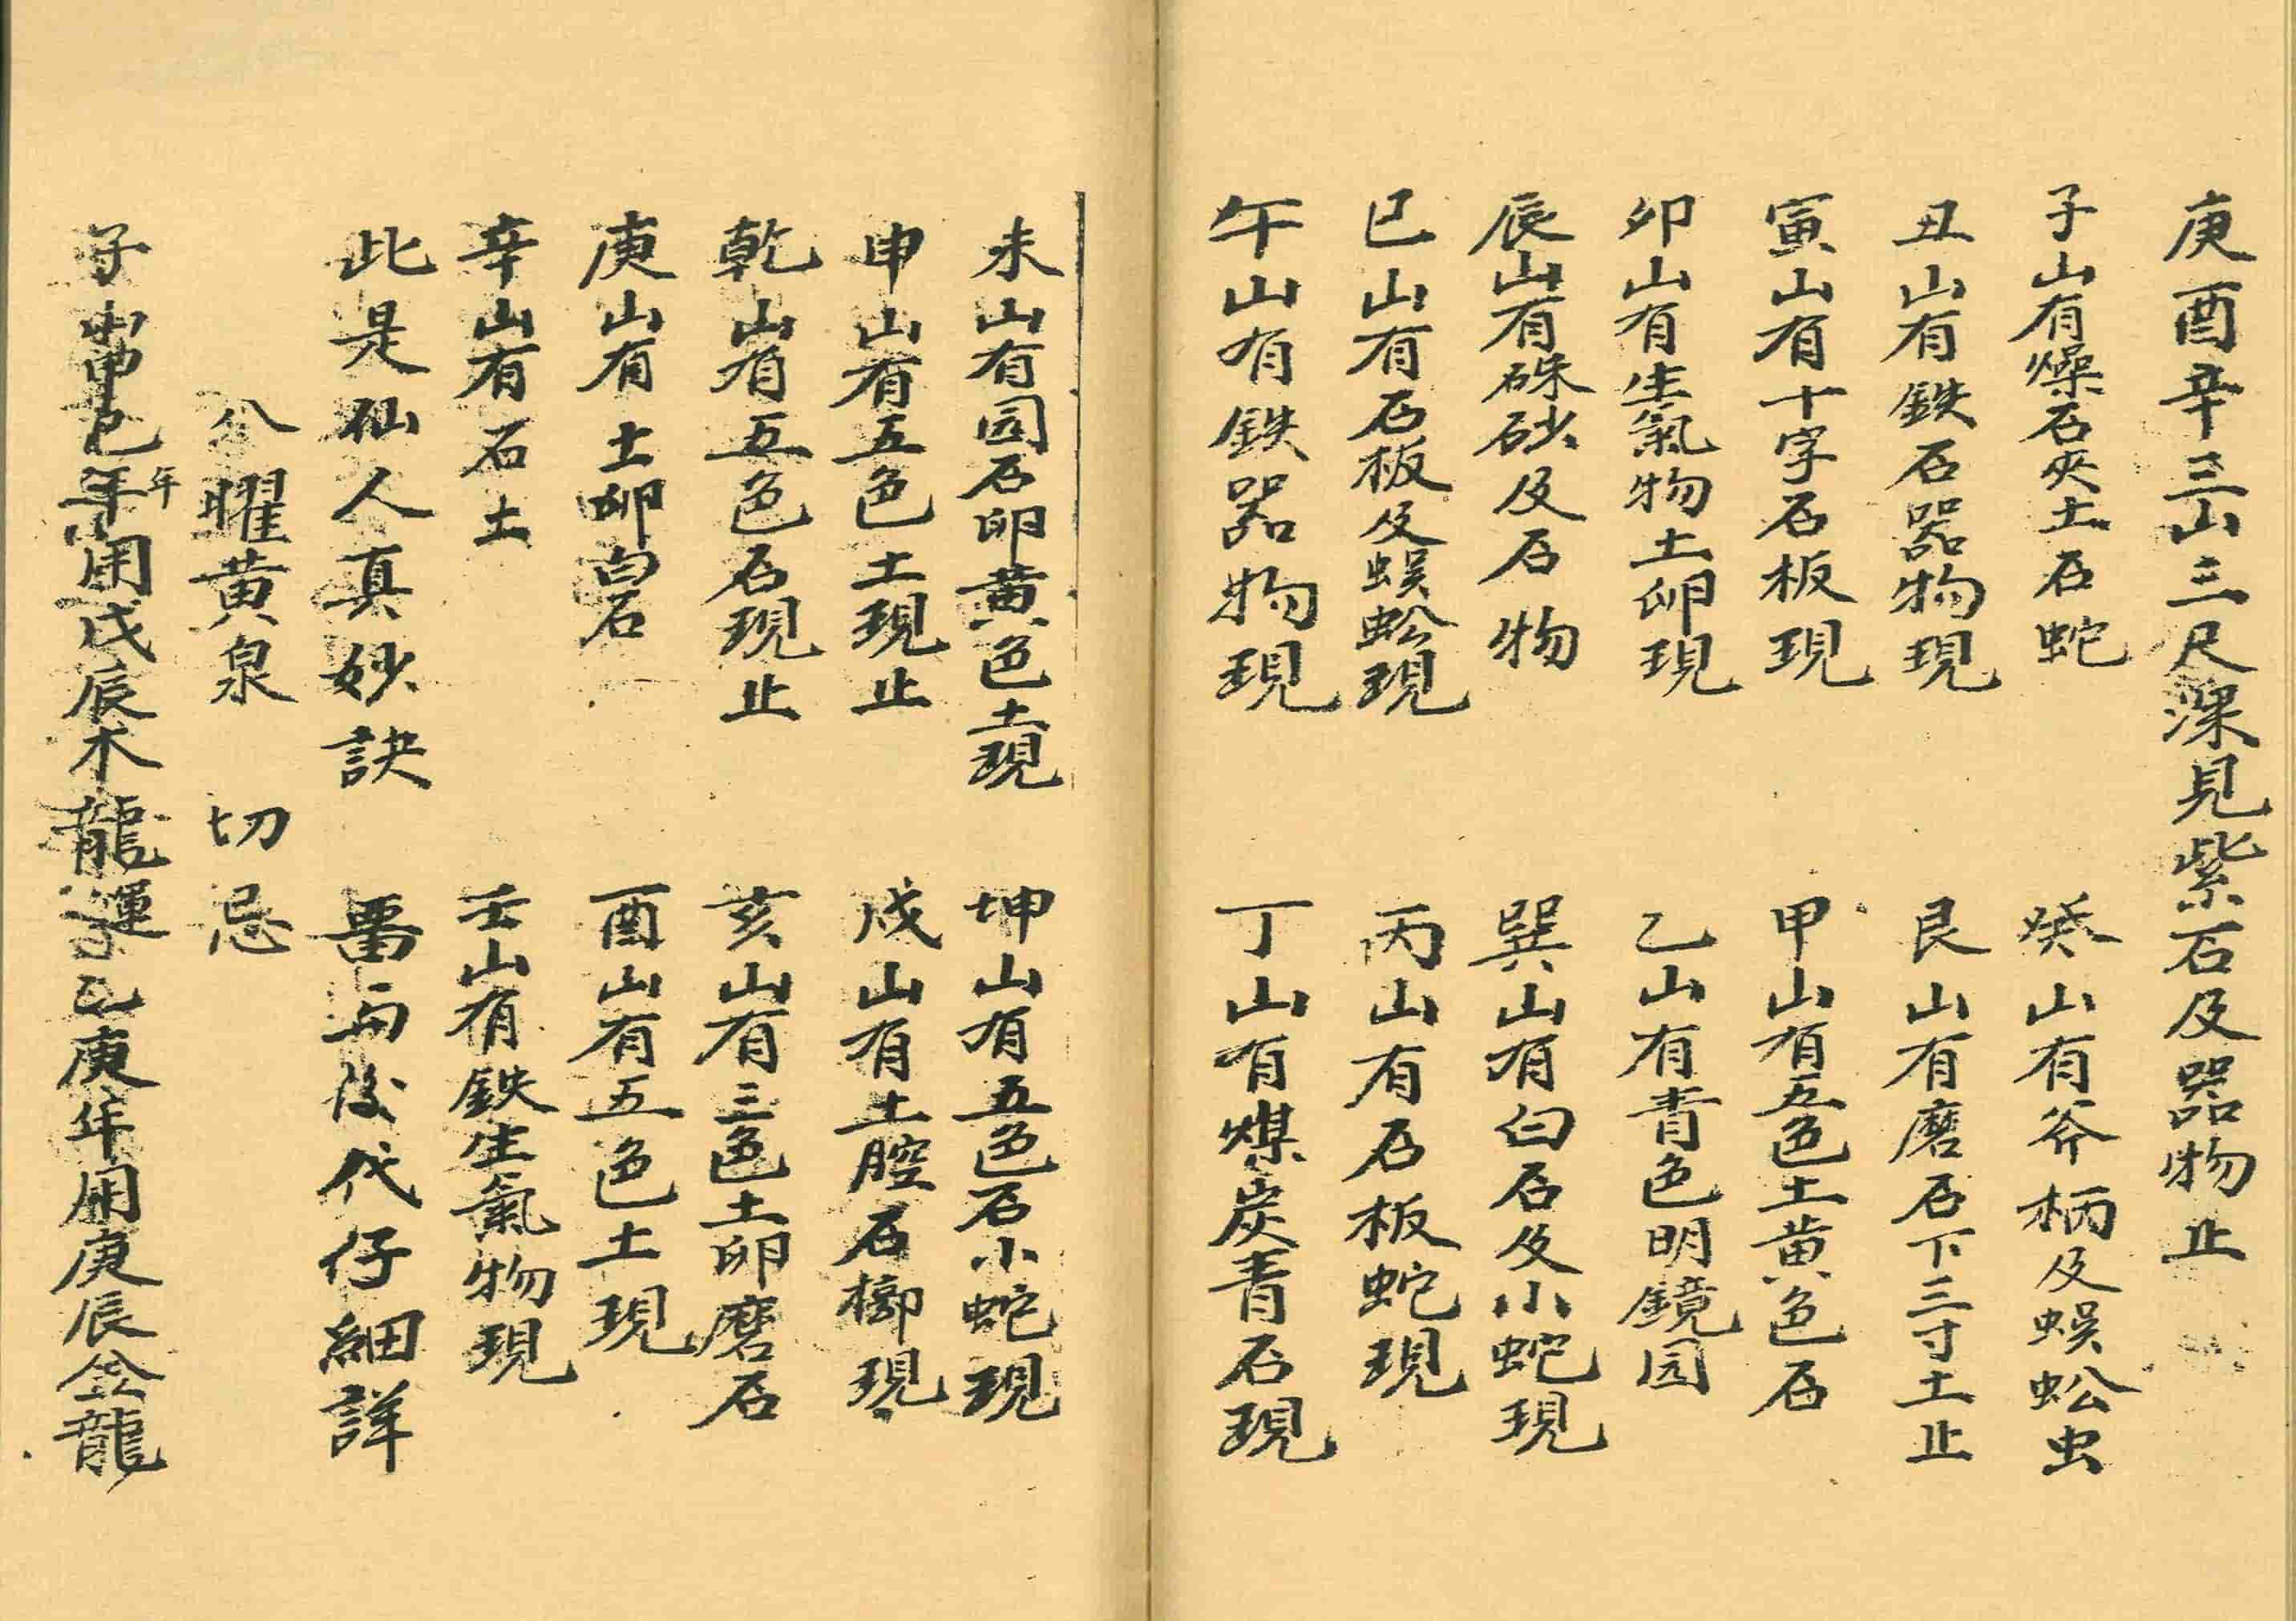 庚酉辛三山三尺深見紫石及器物止
子山有燥石夾土石蛇　癸山有斧柄及蜈蚣虫
丑山有鉄石器物現　艮山有磨石下三寸土止
寅山有十字石板現　甲山有五色土黄色石
卯山有生氣物土卵現　乙山有青色明鏡园
辰山有硃砂及石物　巽山有白石及小蛇現
巳山有石板及蜈蚣現　丙山有石板蛇現
午山有鉄器物現　丁山有煤炭青石現
未山有园石卵黄色土現　坤山有五色石小蛇現
申山有五色土現止　戌山有土腔石槨現
乾山有五色石現止　亥山有三色土卵磨石
庚山有土卵白石　酉山有五色土現
辛山有石土　壬山有鉄生氣物現
此是仙人真妙訣　畱与後代仔細詳
八曜黄泉　切忌
子　年用戊辰木龍運　乙庚年用庚辰金龍